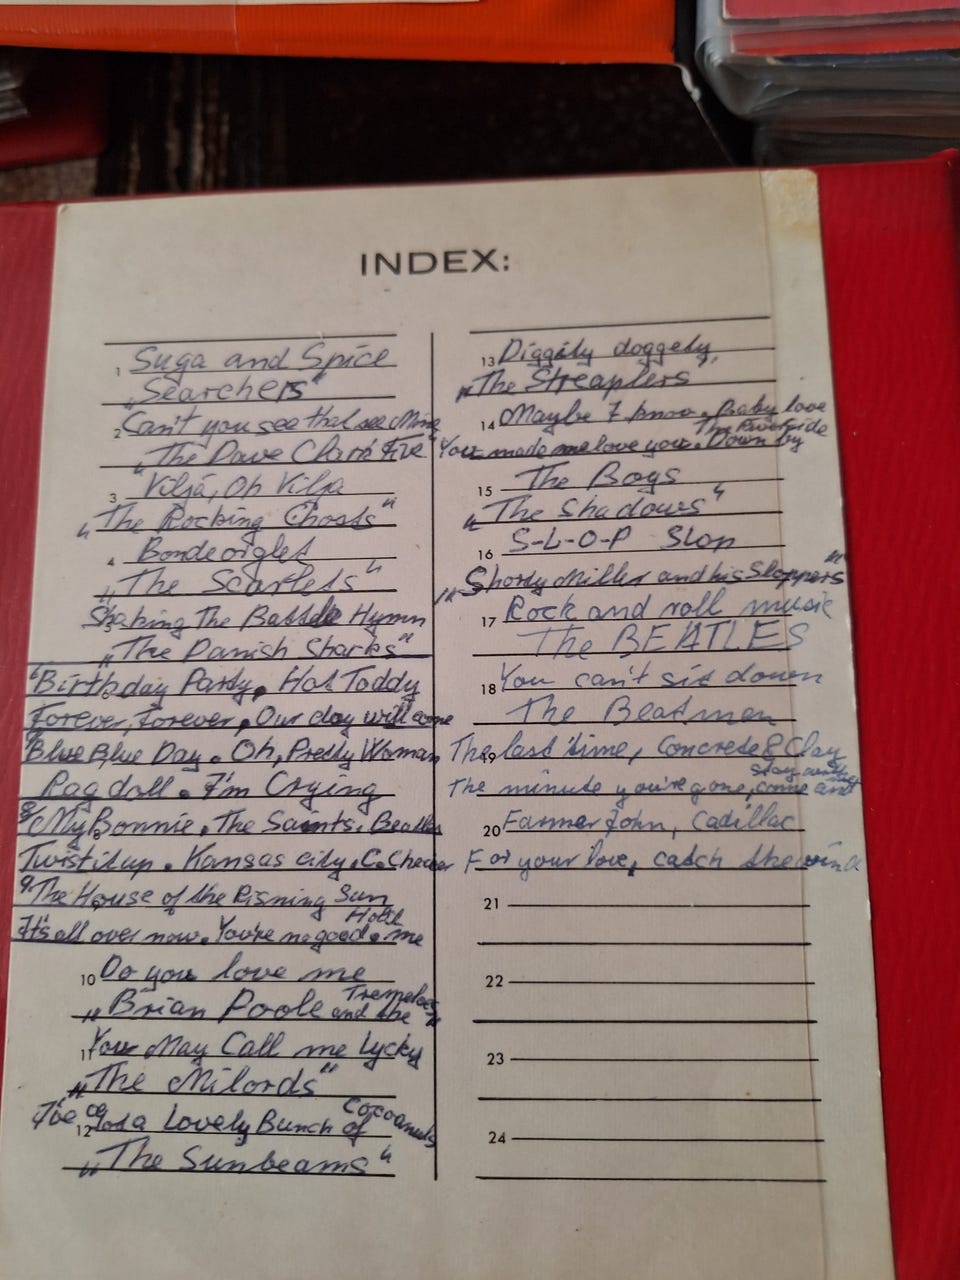 INDEX:
1 Suga and Spice
"Searchers"
2 Can't you see that see Mine
"The Dave Clark Five"
3 Vilja, Oh Vilja
"The Rocking Ghosts"
4 Bondeorglet
"The Scarlets"
5 Shaking The Battle Hymn
"The Danish Sharks"
6 Birthday Party. Hot Toddy
Forever, forever. Our day will come
Blue Blue Day. Oh, Pretty Woman
Rag doll. I'm Crying
8 My Bonnie. The Saints. Beatles
Twist it up. Kansas city. C. Checker
9. The House of the Risning Sun
It's all over now. You're no good. Hold me
10 Do you love me
"Brian Poole and the Tremeloes"
11 Your May Call me Lycky
"The Milords"
12 I've got a Lovely Bunch of Cocoanuts
"The Sunbeams"
13 Diggity doggety
"The Streaplers"
14 Maybe I know. Baby love
You made me love you. Down by The Riverside
15 The Boys
"The Shadows"
16 S-L-O-P Slop
"Shorty Miller and his Sloppers"
17 Rock and roll music
The BEATLES
18 You can't sit down
The Beatmen
19 The last time, Concrete & Clay
The minute you're gone, come and stay with me
20 Farmer John, Cadillac
For your love, catch the wind
21
22
23
24